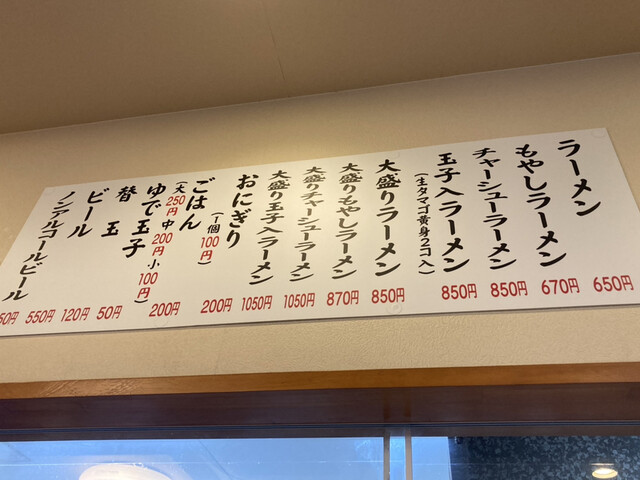 ラーメン 650円
もやしラーメン 670円
チャーシューラーメン 850円
玉子入ラーメン 850円
(生タマゴ黄身2コ入)
大盛りラーメン 850円
大盛りもやしラーメン 870円
大盛りチャーシューラーメン 1050円
大盛り玉子入ラーメン 1050円
おにぎり 200円
(1個100円)
ごはん 200円
(大250円 中200円 小100円)
ゆで玉子 50円
替玉 120円
ビール 550円
ノンアルコールビール